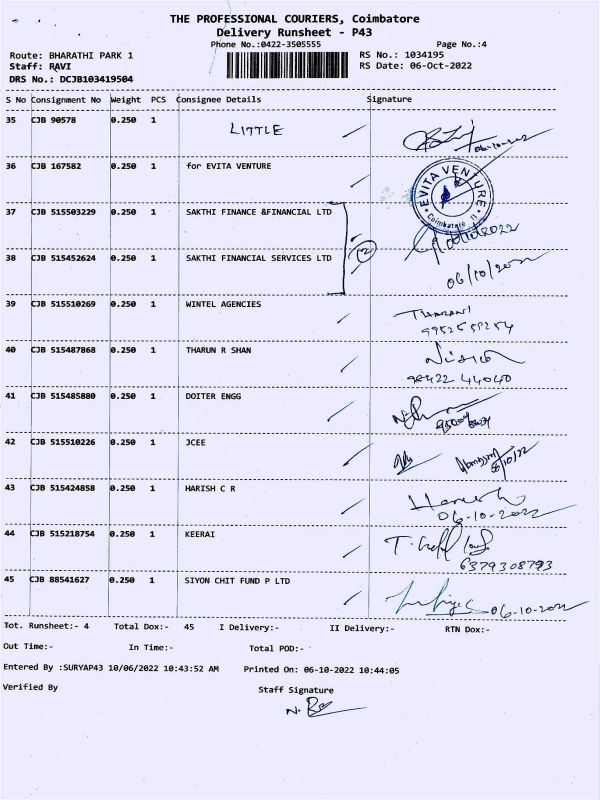 THE PROFESSIONAL COURIERS, Coimbatore
Delivery Runsheet - P43
Phone No.:0422-3505555 Page No.:4
Route: BHARATHI PARK 1 RS No.: 1034195
Staff: RAVI RS Date: 06-Oct-2022
DRS No.: DCJB103419504
S No Consignment No Weight PCS Consignee Details Signature
35 CJB 90578 0.250 1 LITTLE
36 CJB 167582 0.250 1 for EVITA VENTURE
EVITA VENTURE
Coimbatore
37 CJB 515503229 0.250 1 SAKTHI FINANCE &FINANCIAL LTD
38 CJB 515452624 0.250 1 SAKTHI FINANCIAL SERVICES LTD
06/10/2022
39 CJB 515510269 0.250 1 WINTEL AGENCIES
40 CJB 515487868 0.250 1 THARUN R SHAN
98422 44040
41 CJB 515485880 0.250 1 DOITER ENGG
42 CJB 515510226 0.250 1 JCEE
43 CJB 515424858 0.250 1 HARISH C R
Harish
06-10-2022
44 CJB 515218754 0.250 1 KEERAI
6379308793
45 CJB 88541627 0.250 1 SIYON CHIT FUND P LTD
06-10-2022
Tot. Runsheet:- 4 Total Dox:- 45 I Delivery:- II Delivery:- RTN Dox:-
Out Time:- In Time:- Total POD:-
Entered By :SURYAP43 10/06/2022 10:43:52 AM Printed On: 06-10-2022 10:44:05
Verified By Staff Signature